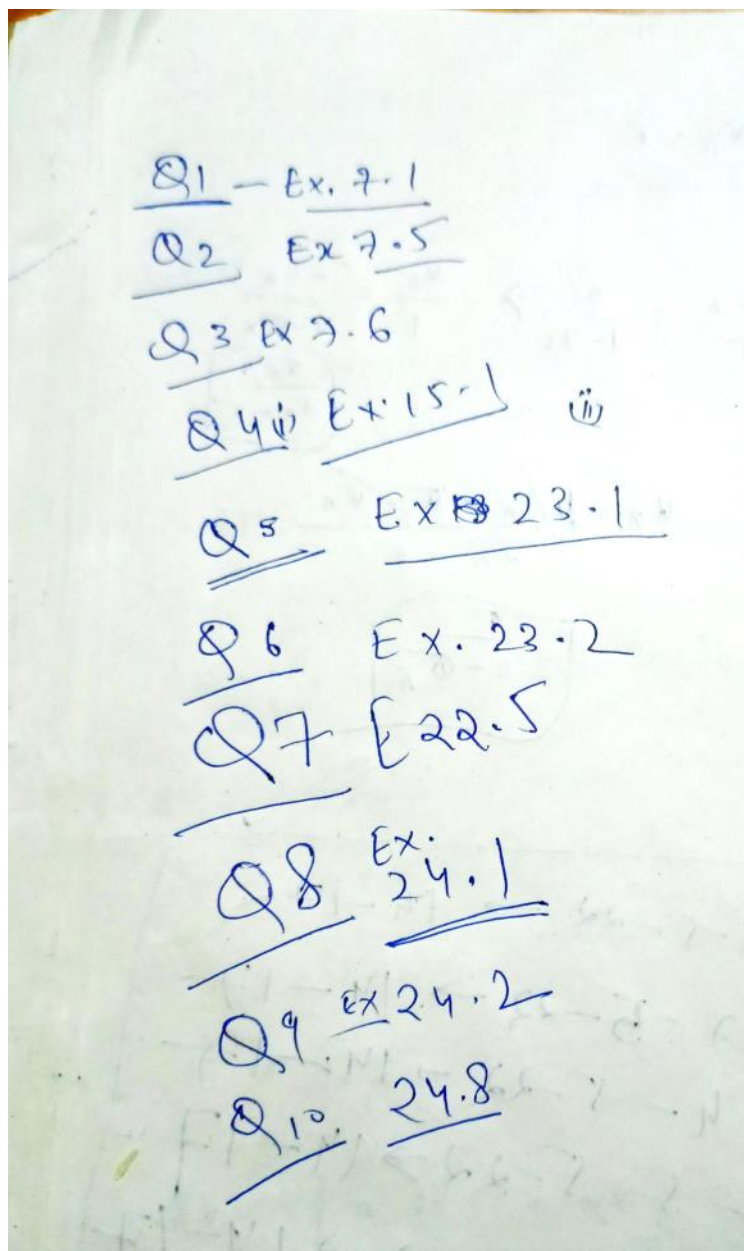 Q1 - Ex. 7.1
Q2 Ex 7.5
Q3 Ex 7.6
Q4 (i) Ex. 15.1 (ii)
Q5 Ex 23.1
Q6 Ex. 23.2
Q7 E 22.5
Q8 Ex. 24.1
Q9 Ex 24.2
Q10. 24.8